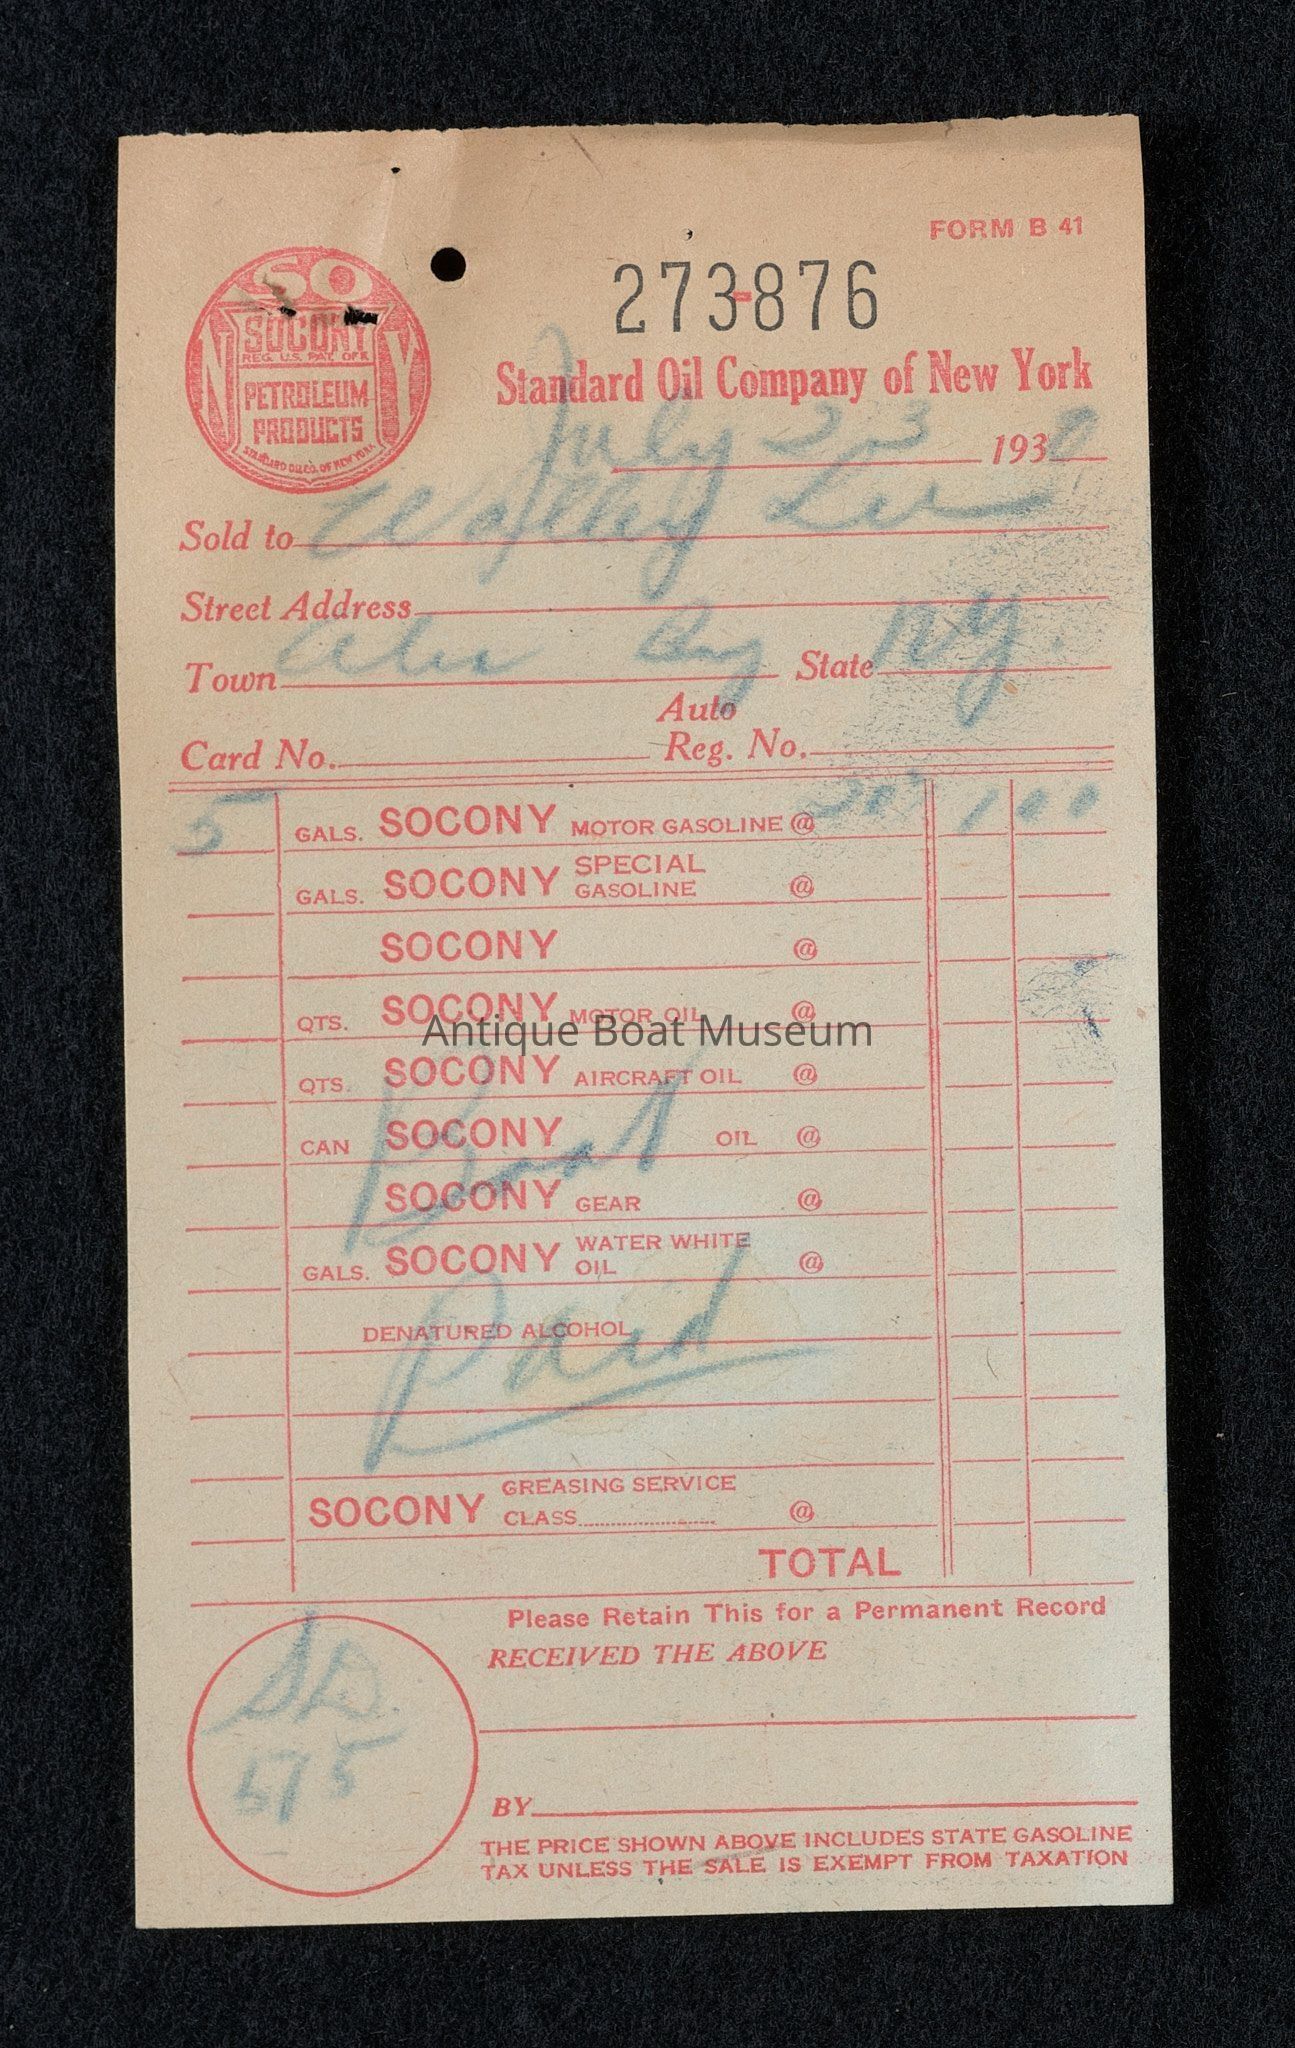 FORM B 41
273-876
SO
NY
SOCONY
REG. U.S. PAT. OFF.
PETROLEUM
PRODUCTS
STANDARD OIL CO. OF NEW YORK
Standard Oil Company of New York
July 23 1930
Sold to
Street Address
Town Alex Bay State N.Y.
Auto
Card No. Reg. No.
5 GALS. SOCONY MOTOR GASOLINE @ 20 1 00
GALS. SOCONY SPECIAL GASOLINE @
SOCONY @
QTS. SOCONY MOTOR OIL @
Antique Boat Museum
QTS. SOCONY AIRCRAFT OIL @
CAN SOCONY OIL @
Boat
SOCONY GEAR @
GALS. SOCONY WATER WHITE OIL @
DENATURED ALCOHOL
Paid
SOCONY GREASING SERVICE CLASS @
TOTAL
Please Retain This for a Permanent Record
RECEIVED THE ABOVE
575
BY
THE PRICE SHOWN ABOVE INCLUDES STATE GASOLINE
TAX UNLESS THE SALE IS EXEMPT FROM TAXATION